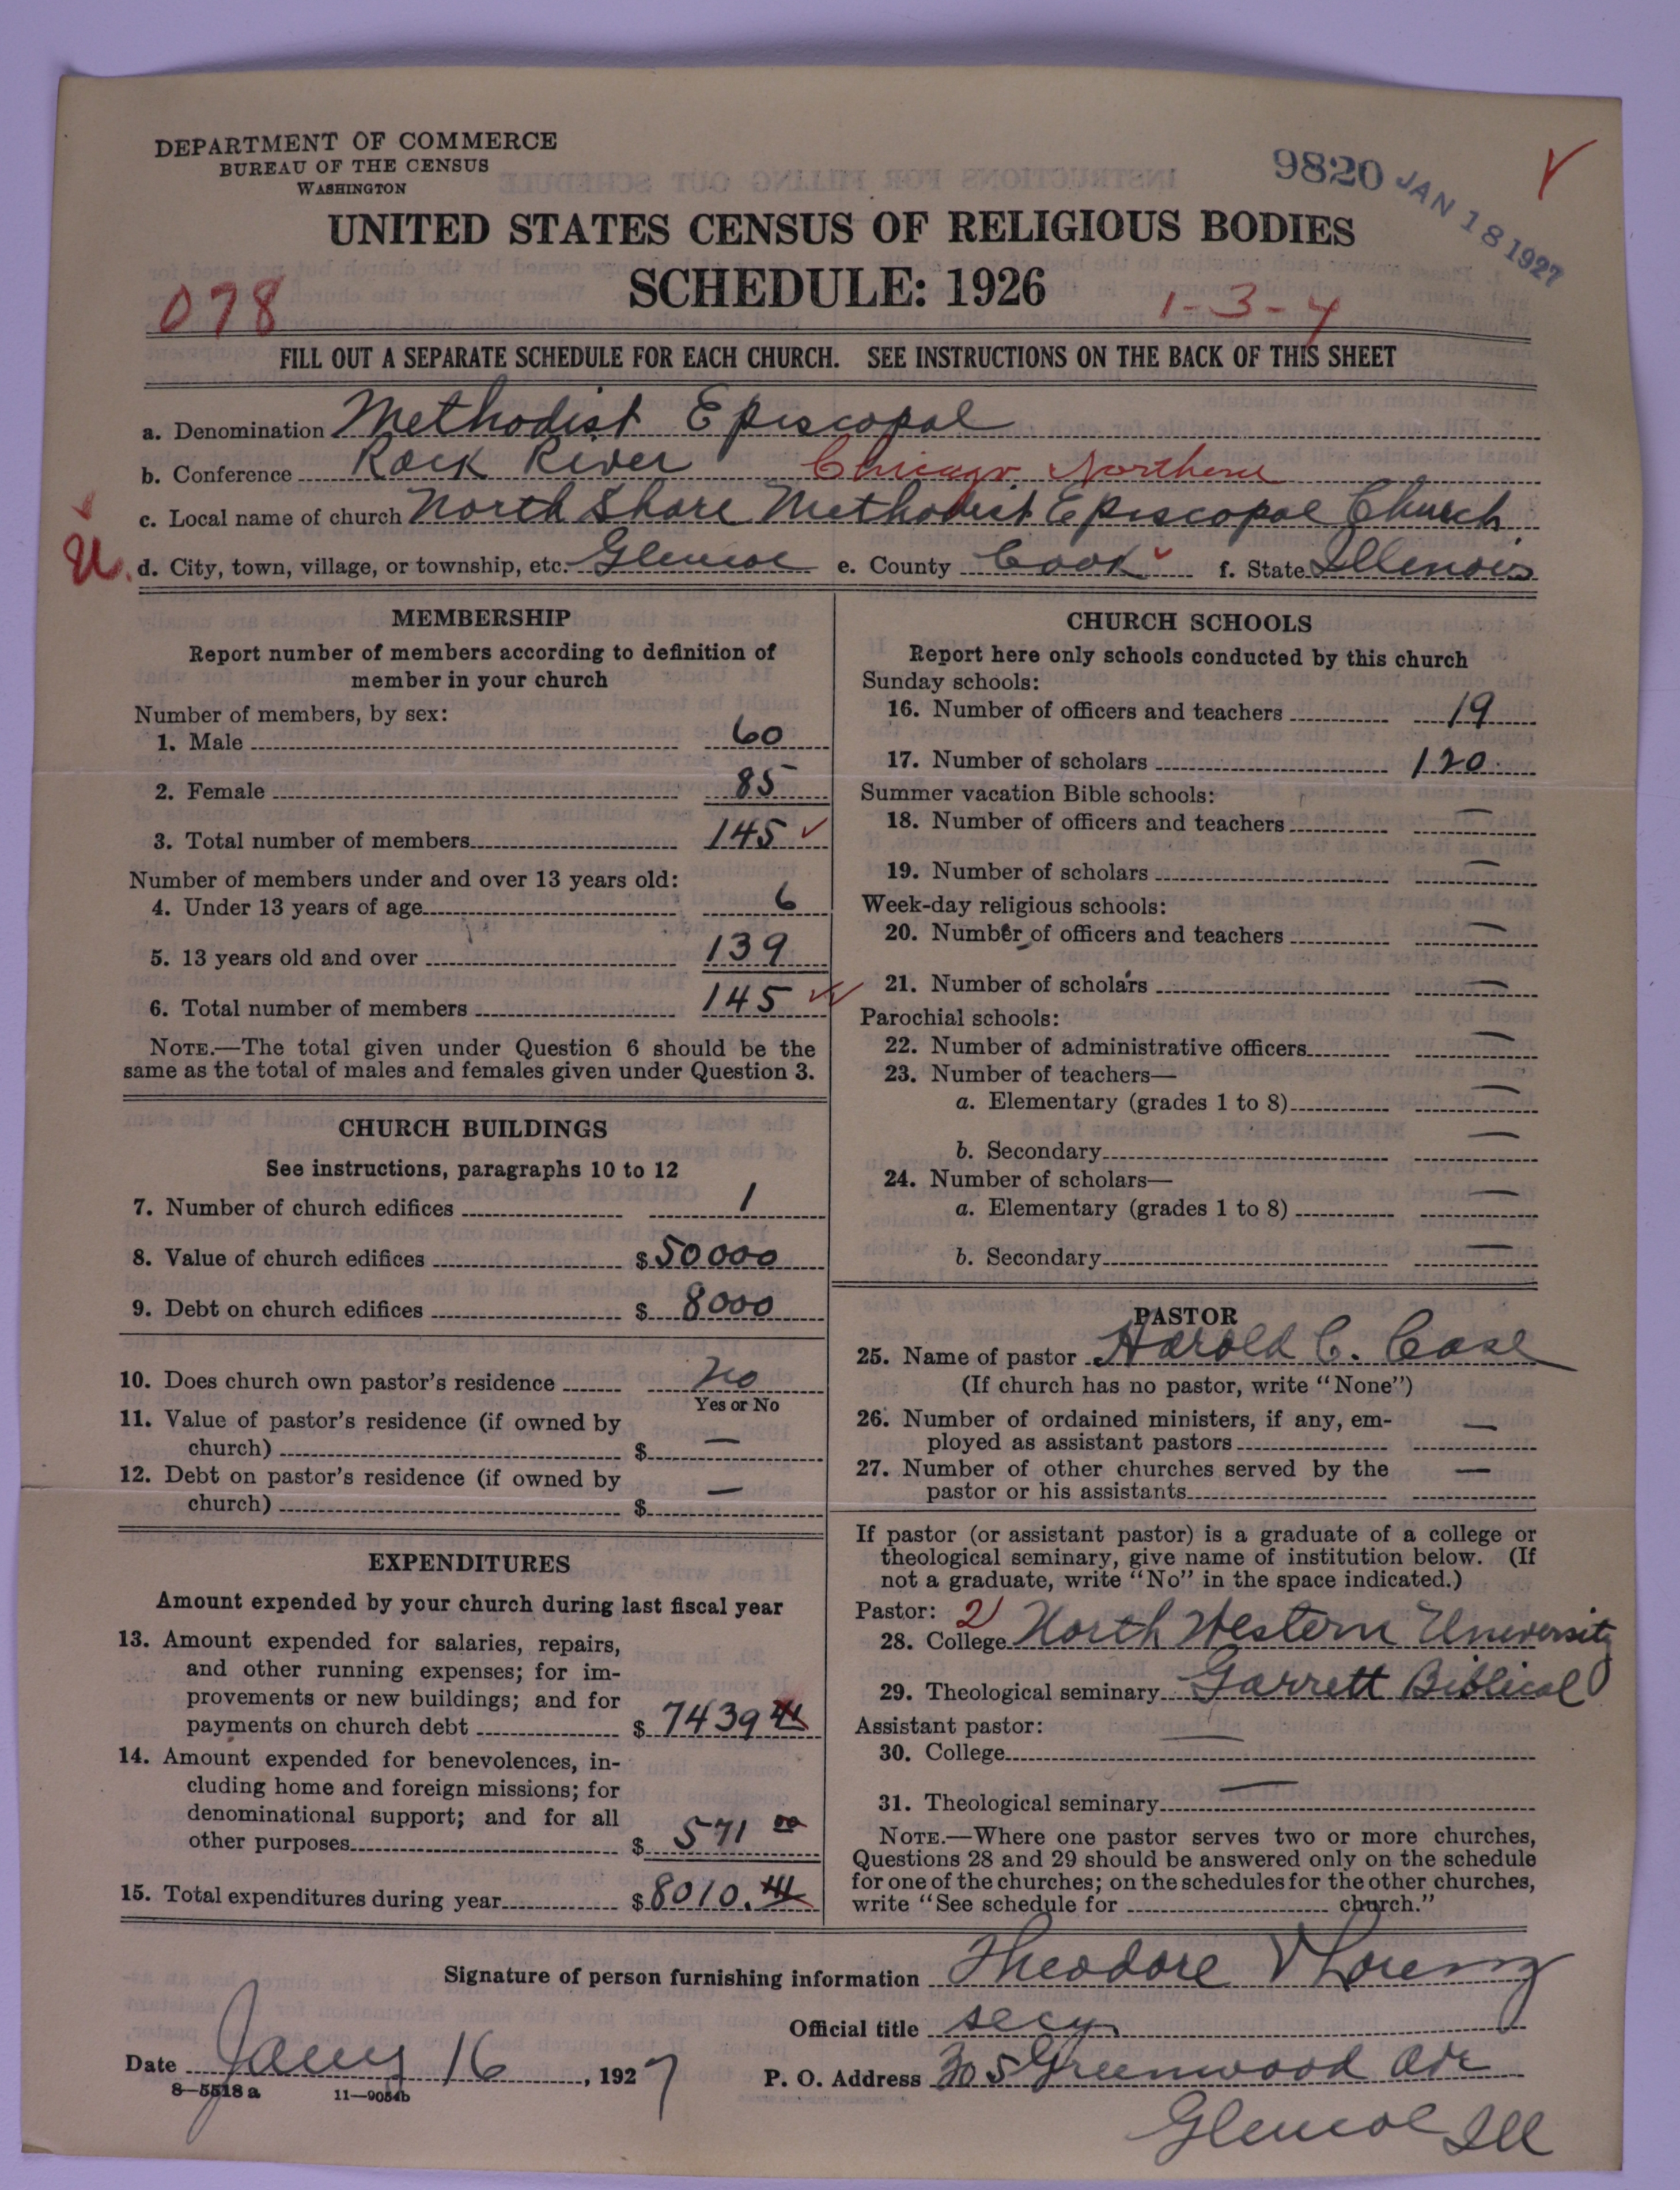 DEPARTMENT OF COMMERCE
BUREAU OF THE CENSUS
WASHINGTON
9820 JAN 18 1927
UNITED STATES CENSUS OF RELIGIOUS BODIES
SCHEDULE: 1926
078
1-3-4
FILL OUT A SEPARATE SCHEDULE FOR EACH CHURCH. SEE INSTRUCTIONS ON THE BACK OF THIS SHEET
a. Denomination Methodist Episcopal
b. Conference Rock River Chicago Northern
c. Local name of church North Shore Methodist Episcopal Church
d. City, town, village, or township, etc. Glencoe e. County Cook f. State Illinois
MEMBERSHIP
Report number of members according to definition of
member in your church
Number of members, by sex:
1. Male 60
2. Female 85
3. Total number of members 145
Number of members under and over 13 years old:
4. Under 13 years of age 6
5. 13 years old and over 139
6. Total number of members 145
NOTE.—The total given under Question 6 should be the
same as the total of males and females given under Question 3.
CHURCH BUILDINGS
See instructions, paragraphs 10 to 12
7. Number of church edifices 1
8. Value of church edifices $50000
9. Debt on church edifices $8000
10. Does church own pastor's residence No
Yes or No
11. Value of pastor's residence (if owned by
church) $ —
12. Debt on pastor's residence (if owned by
church) $ —
EXPENDITURES
Amount expended by your church during last fiscal year
13. Amount expended for salaries, repairs,
and other running expenses; for im-
provements or new buildings; and for
payments on church debt $ 7439
14. Amount expended for benevolences, in-
cluding home and foreign missions; for
denominational support; and for all
other purposes $ 571 00
15. Total expenditures during year $8010.
CHURCH SCHOOLS
Report here only schools conducted by this church
Sunday schools:
16. Number of officers and teachers 19
17. Number of scholars 120
Summer vacation Bible schools:
18. Number of officers and teachers —
19. Number of scholars —
Week-day religious schools:
20. Number of officers and teachers —
21. Number of scholars —
Parochial schools:
22. Number of administrative officers —
23. Number of teachers—
a. Elementary (grades 1 to 8) —
b. Secondary —
24. Number of scholars—
a. Elementary (grades 1 to 8) —
b. Secondary —
PASTOR
25. Name of pastor Harold C. Case
(If church has no pastor, write "None")
26. Number of ordained ministers, if any, em-
ployed as assistant pastors —
27. Number of other churches served by the
pastor or his assistants —
If pastor (or assistant pastor) is a graduate of a college or
theological seminary, give name of institution below. (If
not a graduate, write "No" in the space indicated.)
Pastor: 2
28. College North Western University
29. Theological seminary Garrett Biblical
Assistant pastor:
30. College —
31. Theological seminary —
NOTE.—Where one pastor serves two or more churches,
Questions 28 and 29 should be answered only on the schedule
for one of the churches; on the schedules for the other churches,
write "See schedule for church."
Signature of person furnishing information Theodore V Lorenz
Official title secy
Date Jany 16, 1927 P. O. Address 305 Greenwood Ave
8—5518 a 11—9054b
Glencoe Ill